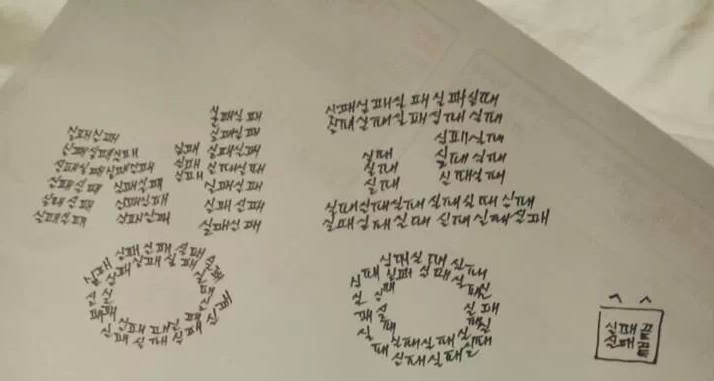 실패실패
실패실패실패
실패실패실패실패
실패실패 실패실패
실패실패 실패실패
실패실패 실패실패
실패실패
실패실패
실패 실패실패
실패 실패실패
실패 실패실패
실패실패
실패실패
실패 실패 실패 실패
실패 실패 실패
실패 실패 실패
실패 실패 실패
실패실패실패실패실패
실패실패실패실패실패
실패실패
실패 실패실패
실패 실패실패
실패
실패실패실패실패실패실패
실패실패실패실패실패실패
실패실패실패
실패 실패 실패 실패
실패실패실패
실패실패
실패
실패